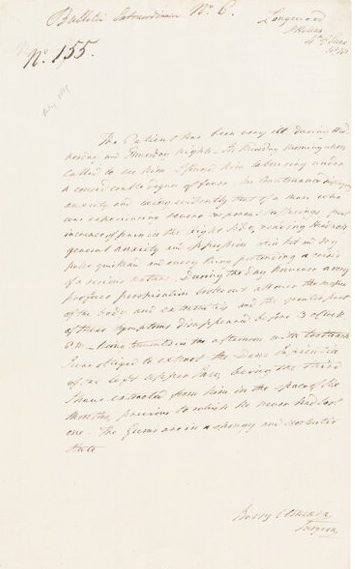 Bulletin Extraordinaire No. 6.
Longwood
No. 155.
The Patient has been very ill during Wed-
nesday and Thursday Nights. On Thursday morning when
called to see him I found him labouring under
a considerable degree of fever his countenance
anxiety and being evidently that of a man who
was experiencing severe
increase of pain in the right side,
general anxiety and oppression skin hot and dry
pulse quickened and every thing portending a crisis
of a serious nature. During the day however a very
profuse perspiration broke out all over the
of the body and extremities and the greater part
of these symptoms disappeared before 3 o'Clock
P.M. Being tormented in the afternoon with toothach
I was obliged to extract the Dens Sapientia
of the left upper Jaw, being the third
I have extracted from him in the space of
Months, previous to which he never had lost
one. The Gums are in a spongy and scorbutic
state
Barry O'Meara
Surgeon